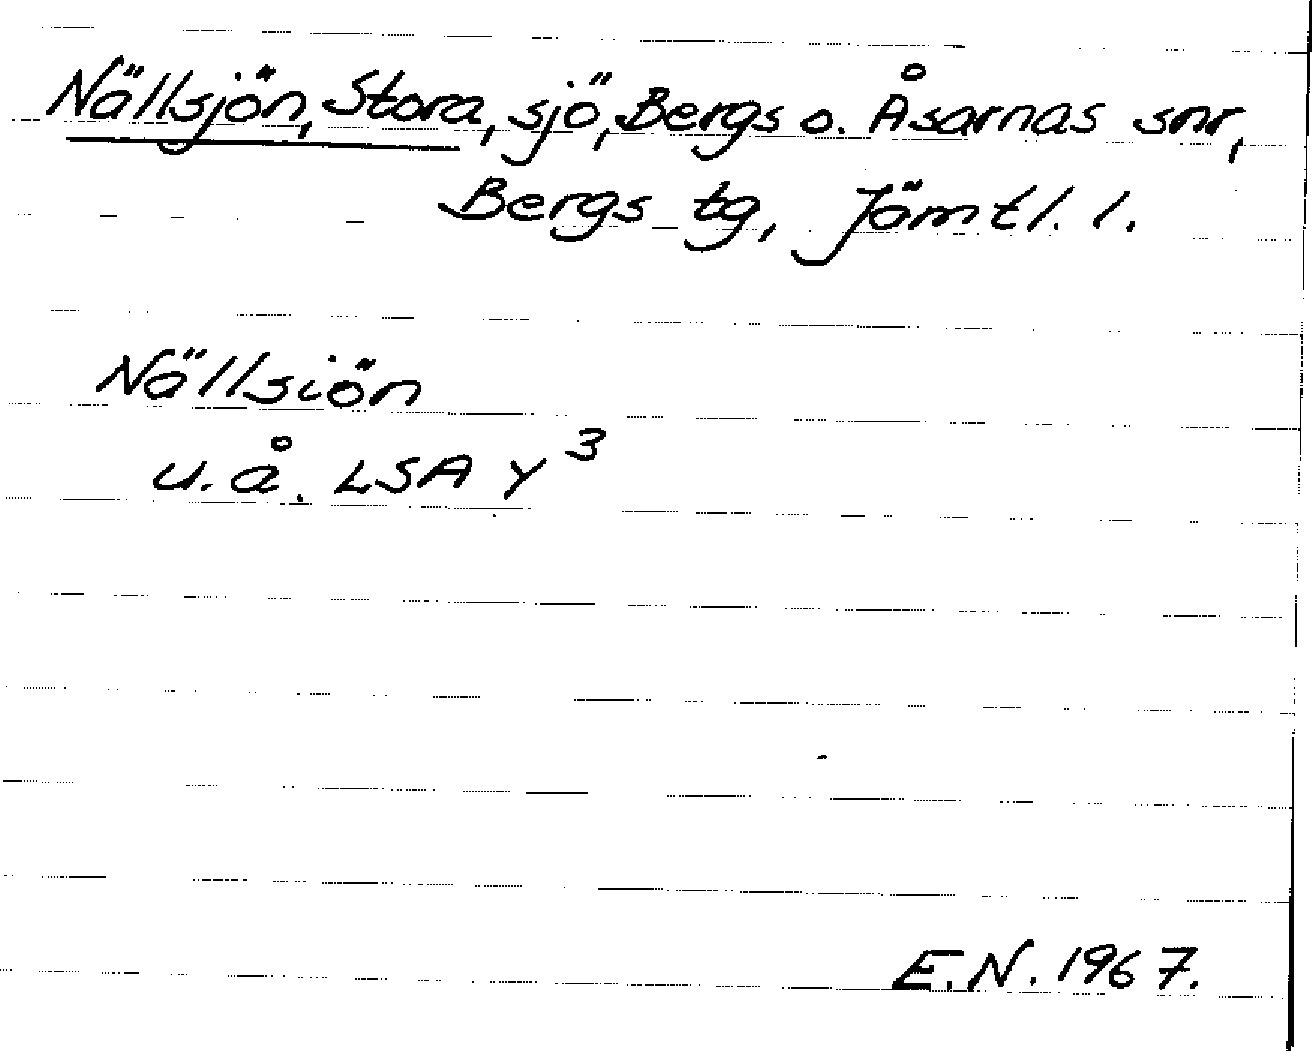 Nällsjön, Stora, sjö, Bergs o. Åsarnas snr,
Bergs tg, Jämtl. l.
Nällsiön
u. å. LSA Y 3
E.N. 1967.